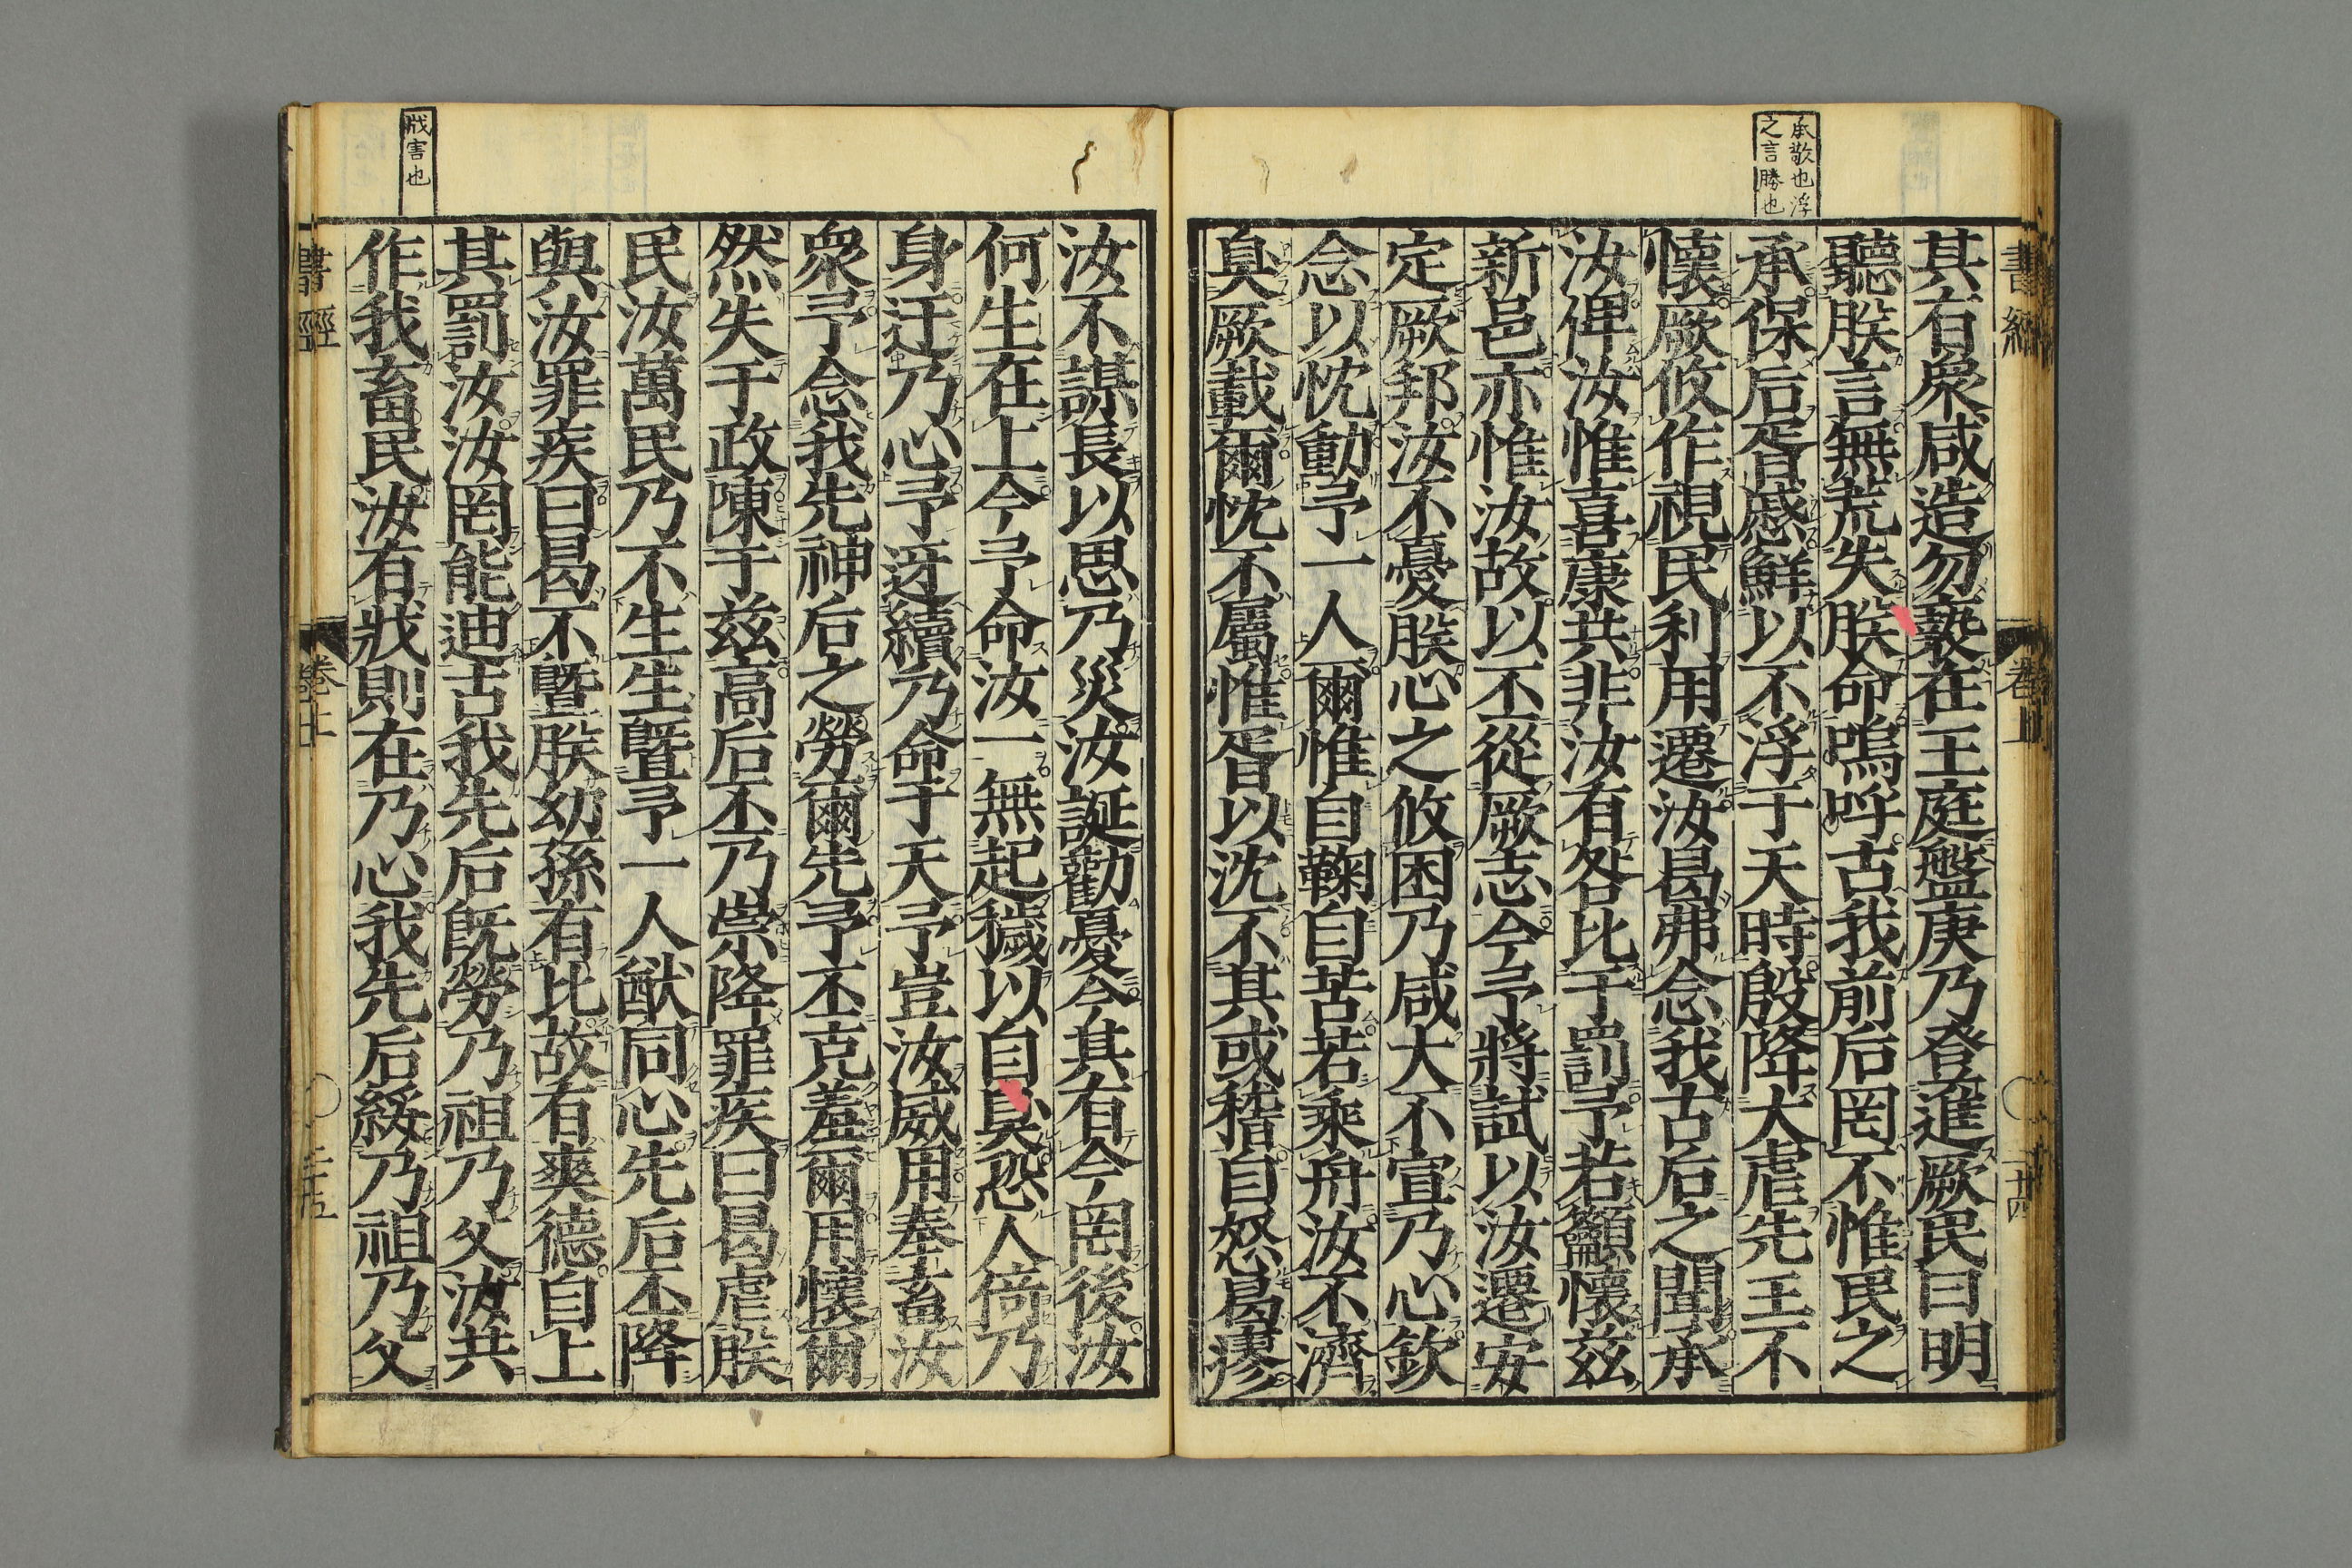 承敬也浮
之言勝也
其有衆咸造勿褻在王庭盤庚乃登進厥民曰明
聽朕言無荒失朕命嗚呼古我前后罔不惟民之
承保后胥慼鮮以不浮于天時殷降大虐先王不
懷厥攸作視民利用遷汝曷弗念我古后之聞承
汝俾汝惟喜康共非汝有咎比于罰予若籲懷茲
新邑亦惟汝故以丕從厥志今予將試以汝遷安
定厥邦汝不憂朕心之攸困乃咸大不宣乃心欽
念以忱動予一人爾惟自鞠自苦若乘舟汝不濟
臭厥載爾忱不屬惟胥以沈不其或稽自怒曷瘳
戕害也
汝不謀長以思乃災汝誕勸憂今其有今罔後汝
何生在上今予命汝一無起穢以自臭恐人倚乃
身迂乃心予迓續乃命于天予豈汝威用奉畜汝
衆予念我先神后之勞爾先予丕克羞爾用懷爾
然失于政陳于茲高后丕乃崇降罪疾曰曷虐朕
民汝萬民乃不生生曁予一人猷同心先后丕降
與汝罪疾曰曷不曁朕幼孫有比故有爽德自上
其罰汝汝罔能迪古我先后既勞乃祖乃父汝共
作我畜民汝有戕則在乃心我先后綏乃祖乃父
書經